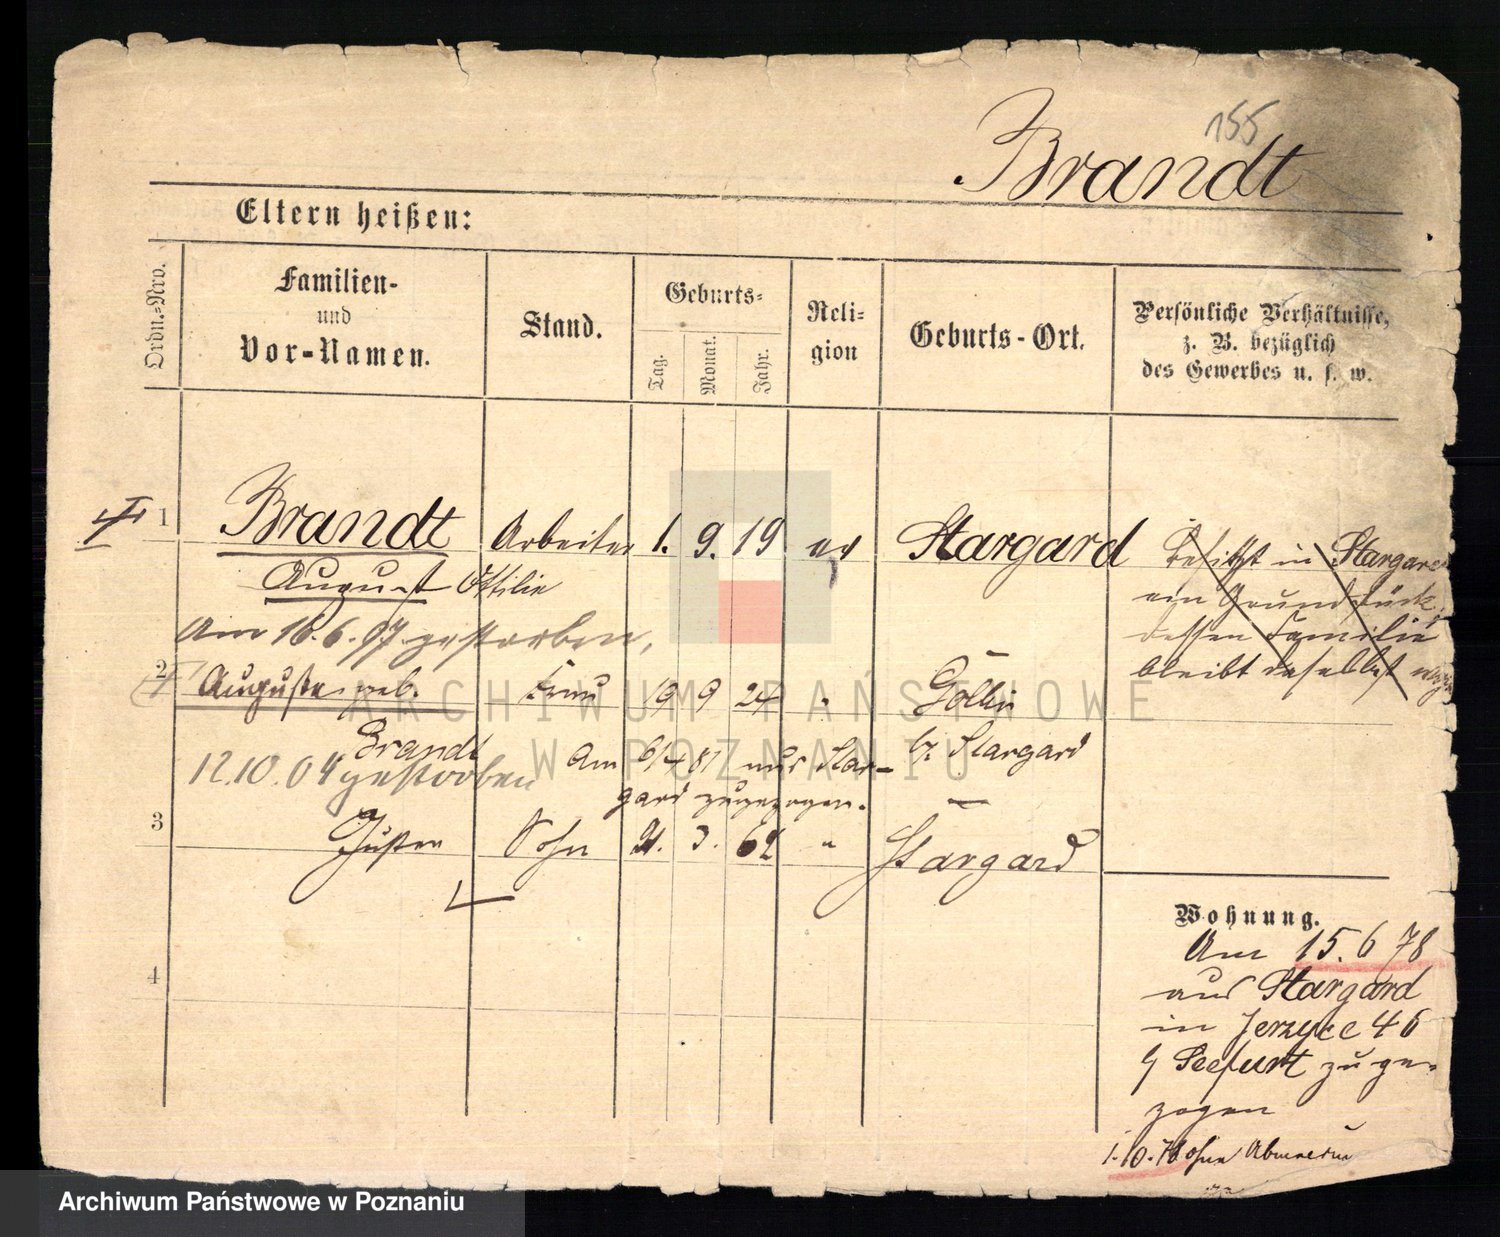 155
Brandt
Eltern heißen:
Ordn.-Nro.
Familien-
und
Vor-Namen.
Stand.
Geburts-
Tag.
Monat.
Jahr.
Reli-
gion
Geburts-Ort.
Persönliche Verhältnisse,
z. B. bezüglich
des Gewerbes u. s. w.
1 Brandt Arbeiter 1. 9. 19 ev Stargard
August Ottilie
Am 16.6.97 gestorben,
Besitzt in Stargard
ein Grundstück,
dessen Familie
bleibt daselbst
2 Auguste geb. Frau 19 9 24 " Gollin
Brandt
b/ Stargard
12.10.04 gestorben
Am 6/4 81 aus Star-
gard zugezogen.
3 Gustav Sohn 21. 3. 62 " Stargard
4
Wohnung.
Am 15.6 78
aus Stargard
in Jerzyce 46
b/ Seefurt zuge-
zogen
1.10.78 ohne
ARCHIWUM PAŃSTWOWE
W POZNANIU
Archiwum Państwowe w Poznaniu